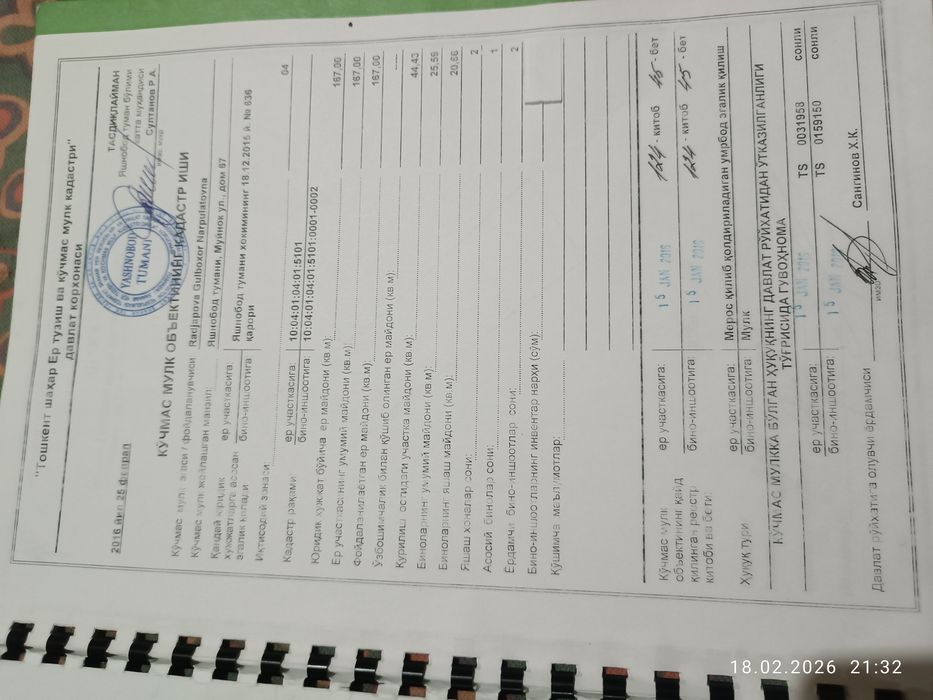 "Тошкент шаҳар Ер тузиш ва кўчмас мулк кадастри"
давлат корхонаси
ТАСДИҚЛАЙМАН
Яшнобод туман бўлими
катта муҳандиси
Султанов Р.А.
YASHNOBOD
TUMANI
2016 йил 25 феврал
КЎЧМАС МУЛК ОБЪЕКТИНИНГ КАДАСТР ИШИ
Кўчмас мулк эгаси / фойдаланувчиси Radjapova Gulboxor Narpulatovna
Кўчмас мулк жойлашган манзил: Яшнобод тумани, Муйнок ул., дом 67
Қандай юридик ҳужжатларга асосан эгалик қилади
ер участкасига: Яшнобод тумани хокимининг 18.12.2015 й. № 636
бино-иншоотига: қарори
Иқтисодий зонаси: 04
Кадастр рақами: ер участкасига: 10:04:01:04:01:5101
бино-иншоотига: 10:04:01:04:01:5101:0001-0002
Юридик ҳужжат бўйича ер майдони (кв.м): 167,00
Ер участкасининг умумий майдони (кв.м): 167,00
Фойдаланилаётган ер майдони (кв.м): 167,00
Ўзбошимчалик билан қўшиб олинган ер майдони (кв.м): ----
Қурилиш остидаги участка майдони (кв.м): 44,43
Биноларнинг умумий майдони (кв.м): 25,59
Биноларнинг яшаш майдони (кв.м): 20,66
Яшаш хоналар сони: 2
Асосий бинолар сони: 1
Ёрдамчи бино-иншоотлар сони: 2
Бино-иншоотларнинг инвентар нархи (сўм):
Қўшимча маълумотлар:
Кўчмас мулк объектининг қайд қилинган реестр китоби ва бети:
ер участкасига: 15 JAN 2016 124 - китоб 45 - бет
бино-иншоотига: 15 JAN 2016 124 - китоб 45 - бет
Ҳуқуқ тури ер участкасига: Мерос қилиб қолдириладиган умрбод эгалик қилиш
бино-иншоотига: Мулк
КЎЧМАС МУЛККА БЎЛГАН ҲУҚУҚНИНГ ДАВЛАТ РЎЙХАТИДАН ЎТКАЗИЛГАНЛИГИ
ТЎҒРИСИДА ГУВОҲНОМА
ер участкасига: 15 JAN 2016 TS 0031958 сонли
бино-иншоотига: 15 JAN TS 0159150 сонли
Давлат рўйхатига олувчи ёрдамчиси Сангинов Х.К.
имзо
18.02.2026 21:32